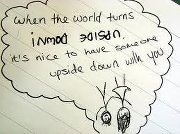 when the world turns
UPSIDE DOWN!
it's nice to have someone
upside down with you